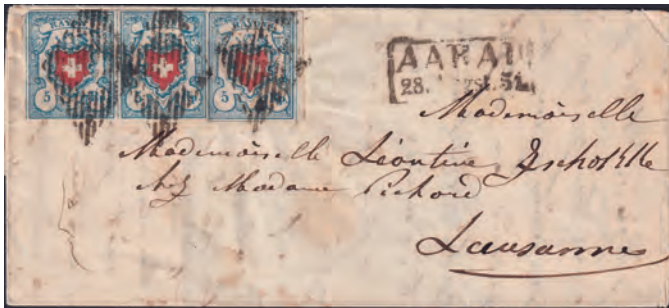 RAYON RAYON RAYON
5 5 5
AARAU
28. 51
Mademoiselle
Mademoiselle Léontine Zschokke
chez Madame Pichard
Lausanne